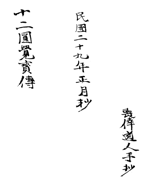 道人手抄
民國二十九年正月抄
十二圓覺寶傳